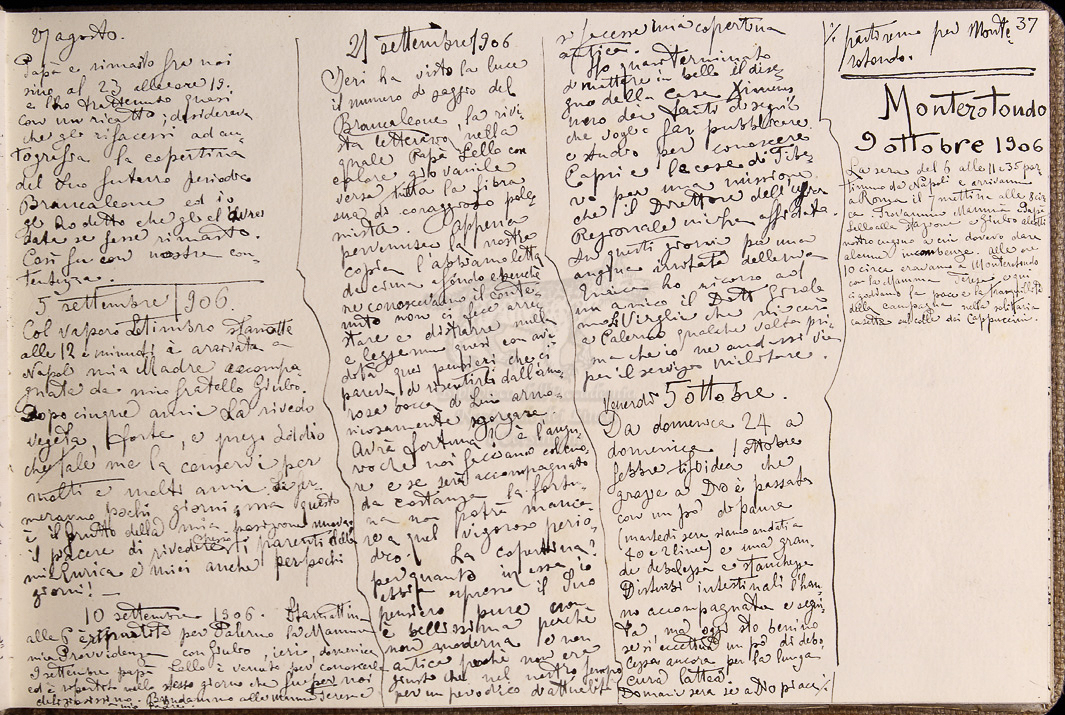 37
27 agosto.
Papà è rimasto fra noi
sino al 23 alle ore 19.
e l'ho trattenuto quasi
con un ricatto; desiderava
che gli rifacessi ad au-
tografia la copertina
del suo futuro periodico
Brancaleone ed io
gli ho detto che gliel'avrei
data se fosse rimasto.
Così fu con nostra con-
tentezza.
5 settembre 1906.
Col vapore Letimbro stanotte
alle 12 e minuti è arrivata a
Napoli mia Madre accompa
gnata da mio fratello Giulio.
Dopo cinque anni la rivedo
vegeta, forte, e prego Iddio
che tale me la conservi per
molti e molti anni. Si fer
meranno pochi giorni, ma questo
è il frutto della mia posizione
il piacere di rivedere i parenti della
mia Enrica e miei anche per pochi
giorni! —
10 settembre 1906. Stamattin
alle 6 è ripartita per Palermo la Mamma
mia Provvidenza con Giulio, ieri, domenica
9 settembre papà Lello è venuto per conoscerla
ed è ripartito nello stesso giorno che fu per noi
deliziosissimo. alle mamma Teresa e
21 settembre 1906
Ieri ha visto la luce
il numero di saggio del
Brancaleone, la rivi-
sta letteraria, nella
quale Papà Lello con
calore giovanile
versa tutta la fibra
sua di coraggioso pole
mista. Appena
pervenutaci la nostra
copia l'abbiamo letta
da cima a fondo e benché
ne conoscevamo il conte-
nuto non ci fece arre
stare e distrarre nulla
e leggemmo quasi con avi-
dità quei pensieri che ci
pareva di risentirli dall'amo
rosa bocca di Lui armo-
niosamente sgorgare.
Avrà fortuna? Sì è l'augu
rio che noi facciamo col cuo
re e se sarà accompagnato
da costanza la fortu-
na non potrà manca-
re a quel vigoroso perio-
dico. La copertina?
per quanto in essa io
abbia espresso il Suo
pensiero pure non
è bellissima perchè
non moderna e non
antica poichè non era
giusto che nel nostro tempo
per un periodico d'attualità
si facesse una copertina
antica.
Ho quasi terminato
di mettere in bello il dise
gno della casa Ximenes
uno dei tanti disegni
che voglio far pubblicare
e studio per conoscere
Capri e le case di Tibe-
rio per una missione
che il Direttore dell'Ufficio
Regionale mi ha affidata.
In questi giorni per una
angina notata della mia
Enrica ho ricorso ad
un amico il Dott. Girola
mo Virgilio che mi curò
a Palermo qualche volta pri-
ma che io me andassi via
per il servizio militare.
Venerdì 5 ottobre.
Da domenica 24 a
domenica 1 ottobre
febbre tifoidea che
grazie a Dio è passata
con un po' di paura
(martedì sera siamo andati a
40 e 2 linee) e una gran-
de debolezza e stanchezza
Disturbi intestinali l'han-
no accompagnata e segui
ta ma oggi sto benino
se si eccettua un po' di debo
lezza ancora per la lunga
cura lattea.
Domani sera se a Dio piace ./.
./. partiremo per Monte
rotondo.
Monterotondo
9 ottobre 1906
La sera del 6 alle 11 e 35 par
timmo da Napoli e arrivammo
a Roma il 7 mattina alle 8 cir
ca. Trovammo Mamma e Papà
Lello alla stazione e Giulio
nostro cugino a cui dovevo dare
alcune incombenze. Alle ore
10 circa eravamo a Monterotondo
con la Mamma Teresa e qui
ci godiamo la pace e la tranquillità
della campagna nella solitaria
casetta sul colle dei Cappuccini.